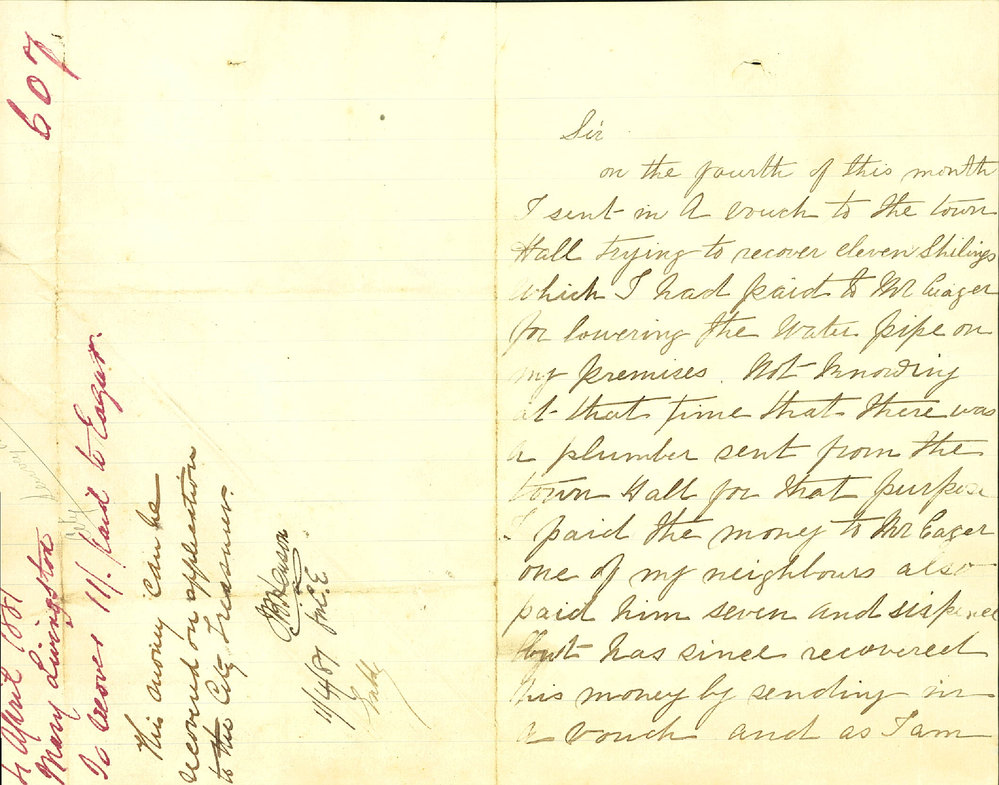 607
4 April 1881
Mary Livingston
To recover 11/. paid to Eagar.
This money can be
recovered on application
to the City Treasurer.
11/4/81
Sir
on the fourth of this month
I sent in A vouch to the town
Hall trying to recover eleven Shilings
which I had paid to Mr Eager
for lowering the Water pipe on
my premises. Not Knowing
at that time that there was
a plumber sent from the
town Hall for that purpose
I paid the money to Mr Eager
one of my neighbours also
paid him seven and sixpence
but has since recovered
his money by sending in
a vouch and as I am